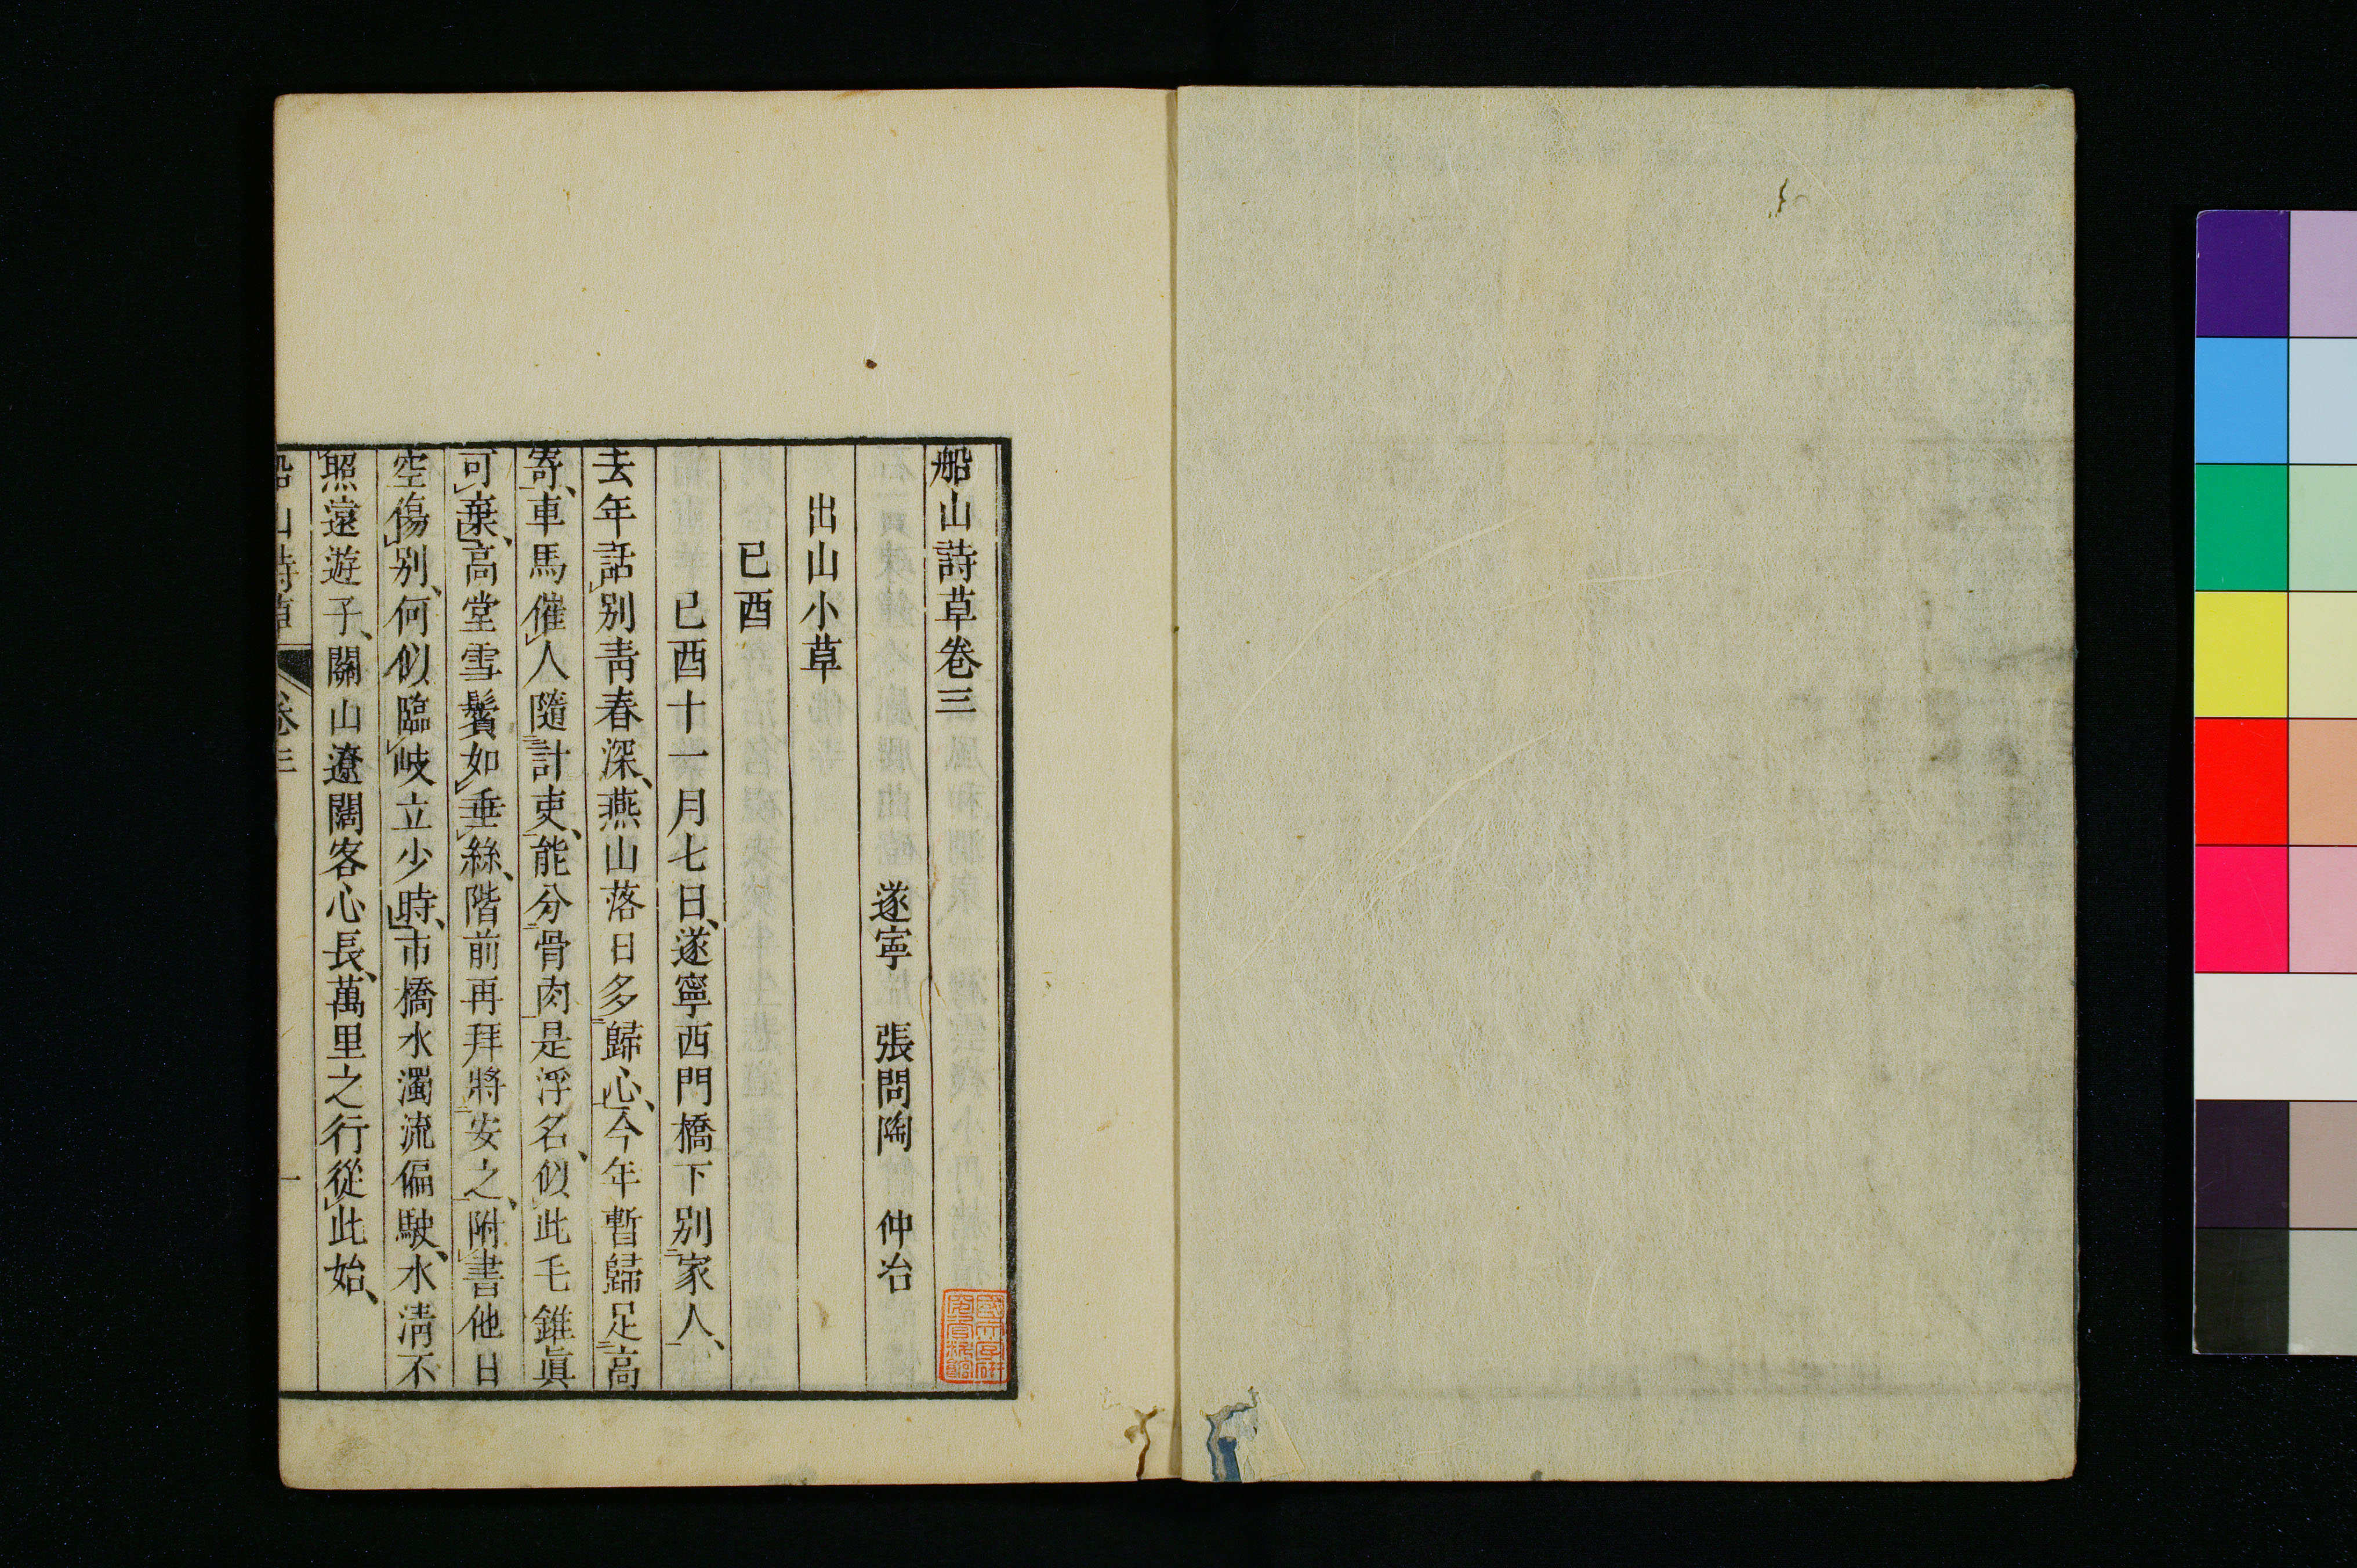 船山詩草卷三
遂寧　張問陶　仲冶
出山小草
已酉
已酉十一月七日、遂寧西門橋下別家人、
去年話別青春深、燕山落日多歸心、今年暫歸足高
寄、車馬催人隨計吏、能分骨肉是浮名、似此毛錐眞
可棄、高堂雪鬢如垂絲、階前再拜將安之、附書他日
空傷別、何似臨岐立少時、市橋水濁流偏駛、水清不
照遠遊子、關山遼闊客心長、萬里之行從此始、
船山詩草 卷三 一